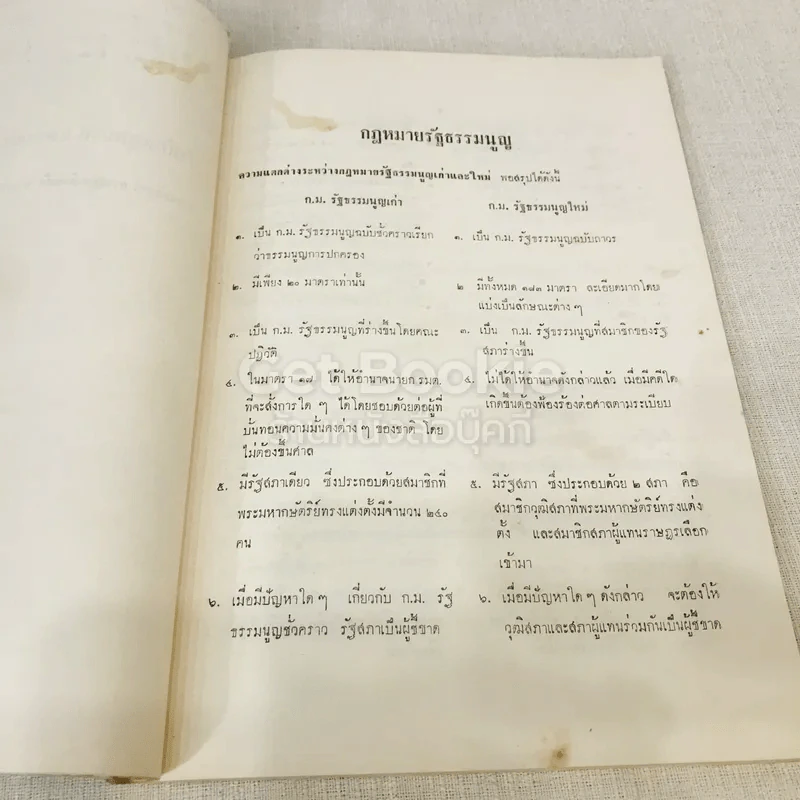 กฎหมายรัฐธรรมนูญ
ความแตกต่างระหว่างกฎหมายรัฐธรรมนูญเก่าและใหม่ พอสรุปได้ดังนี้
ก.ม. รัฐธรรมนูญเก่า
๑. เป็น ก.ม. รัฐธรรมนูญฉบับชั่วคราวเรียก
ว่าธรรมนูญการปกครอง
๒. มีเพียง ๒๐ มาตราเท่านั้น
๓. เป็น ก.ม. รัฐธรรมนูญที่ร่างขึ้นโดยคณะ
ปฏิวัติ
๔. ในมาตรา ๑๗ ได้ให้อำนาจนายก รมต.
ที่จะสั่งการใด ๆ ได้โดยชอบด้วยต่อผู้ที่
บั่นทอนความมั่นคงต่าง ๆ ของชาติ โดย
ไม่ต้องขึ้นศาล
๕. มีรัฐสภาเดียว ซึ่งประกอบด้วยสมาชิกที่
พระมหากษัตริย์ทรงแต่งตั้งมีจำนวน ๒๔๐
คน
๖. เมื่อมีปัญหาใด ๆ เกี่ยวกับ ก.ม. รัฐ
ธรรมนูญชั่วคราว รัฐสภาเป็นผู้ชี้ขาด
ก.ม. รัฐธรรมนูญใหม่
๑. เป็น ก.ม. รัฐธรรมนูญฉบับถาวร
๒ มีทั้งหมด ๑๘๓ มาตรา ละเอียดมากโดย
แบ่งเป็นลักษณะต่าง ๆ
๓. เป็น ก.ม. รัฐธรรมนูญที่สมาชิกของรัฐ
สภาร่างขึ้น
๔. ไม่ได้ให้อำนาจดังกล่าวแล้ว เมื่อมีคดีใด
เกิดขึ้นต้องฟ้องร้องต่อศาลตามระเบียบ
๕. มีรัฐสภา ซึ่งประกอบด้วย ๒ สภา คือ
สมาชิกวุฒิสภาที่พระมหากษัตริย์ทรงแต่ง
ตั้ง และสมาชิกสภาผู้แทนราษฎรเลือก
เข้ามา
๖. เมื่อมีปัญหาใด ๆ ดังกล่าว จะต้องให้
วุฒิสภาและสภาผู้แทนร่วมกันเป็นผู้ชี้ขาด
Get Bookie
ร้านหนังสือบุ๊คกี้